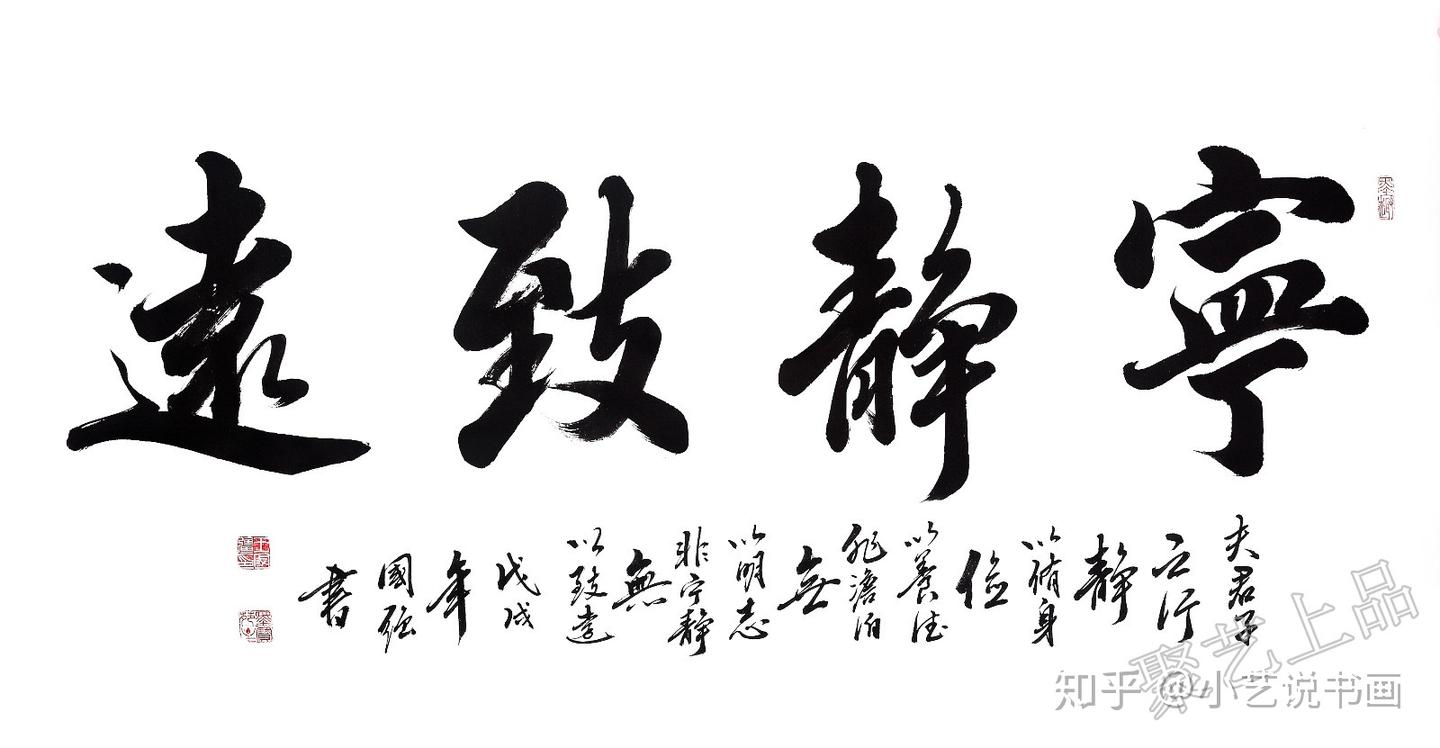 寧靜致遠
夫君子
之行
靜
以脩身
儉
以養德
非澹泊
無
以明志
非宁靜
無
以致遠
戊戌
年
國强
書
聚艺上品
知乎 @小艺说书画